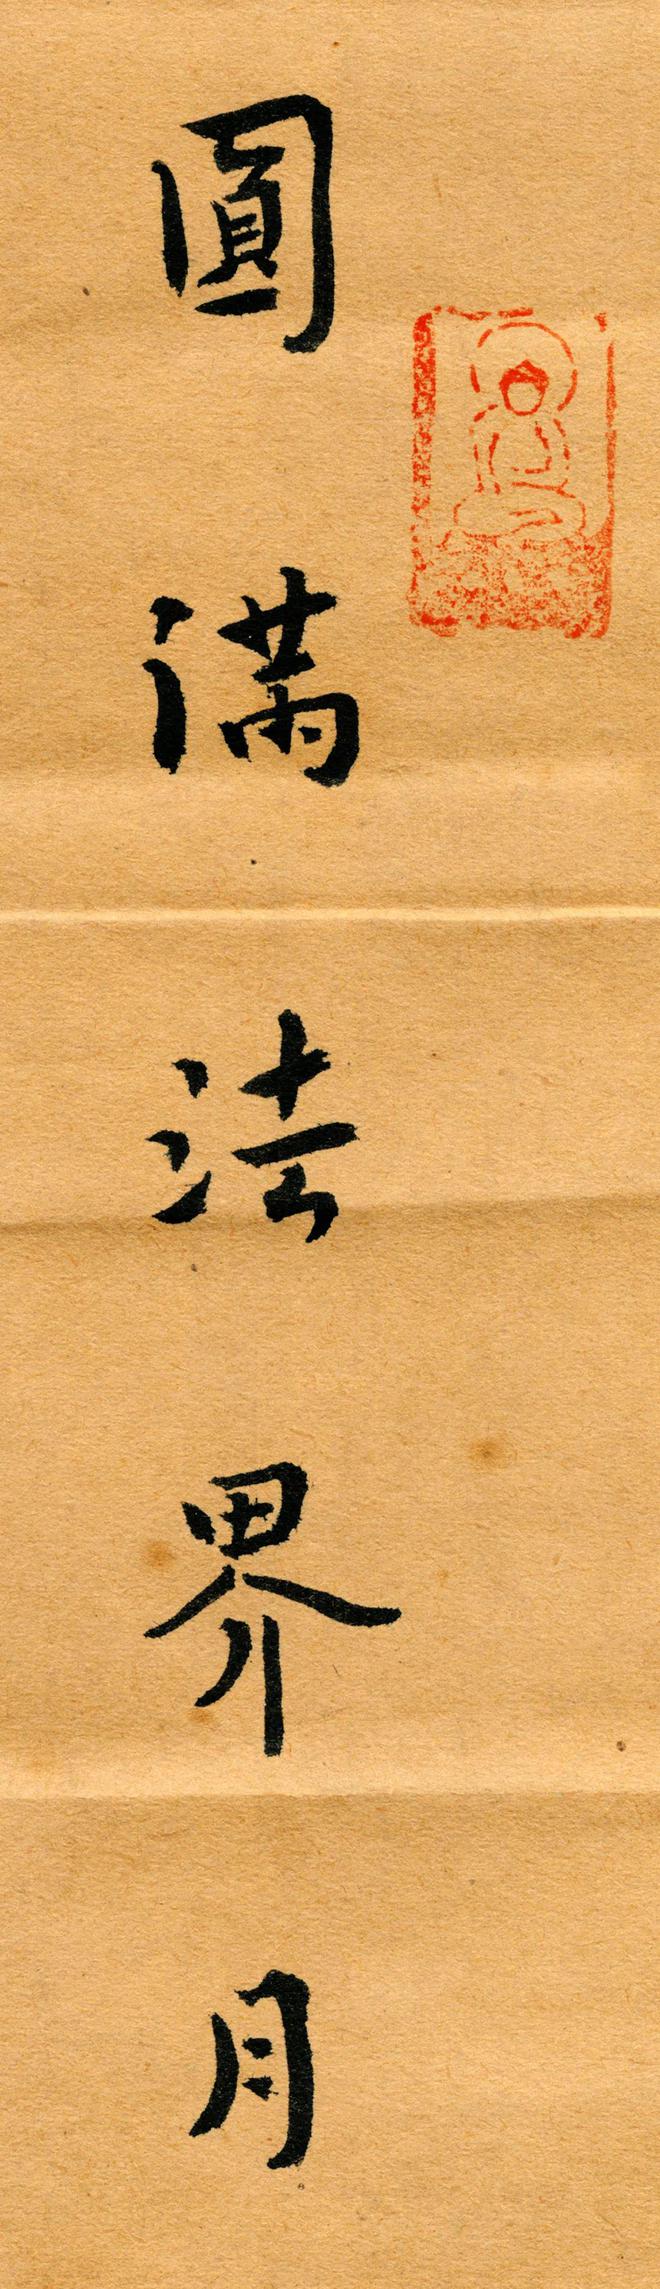 圓滿法界月